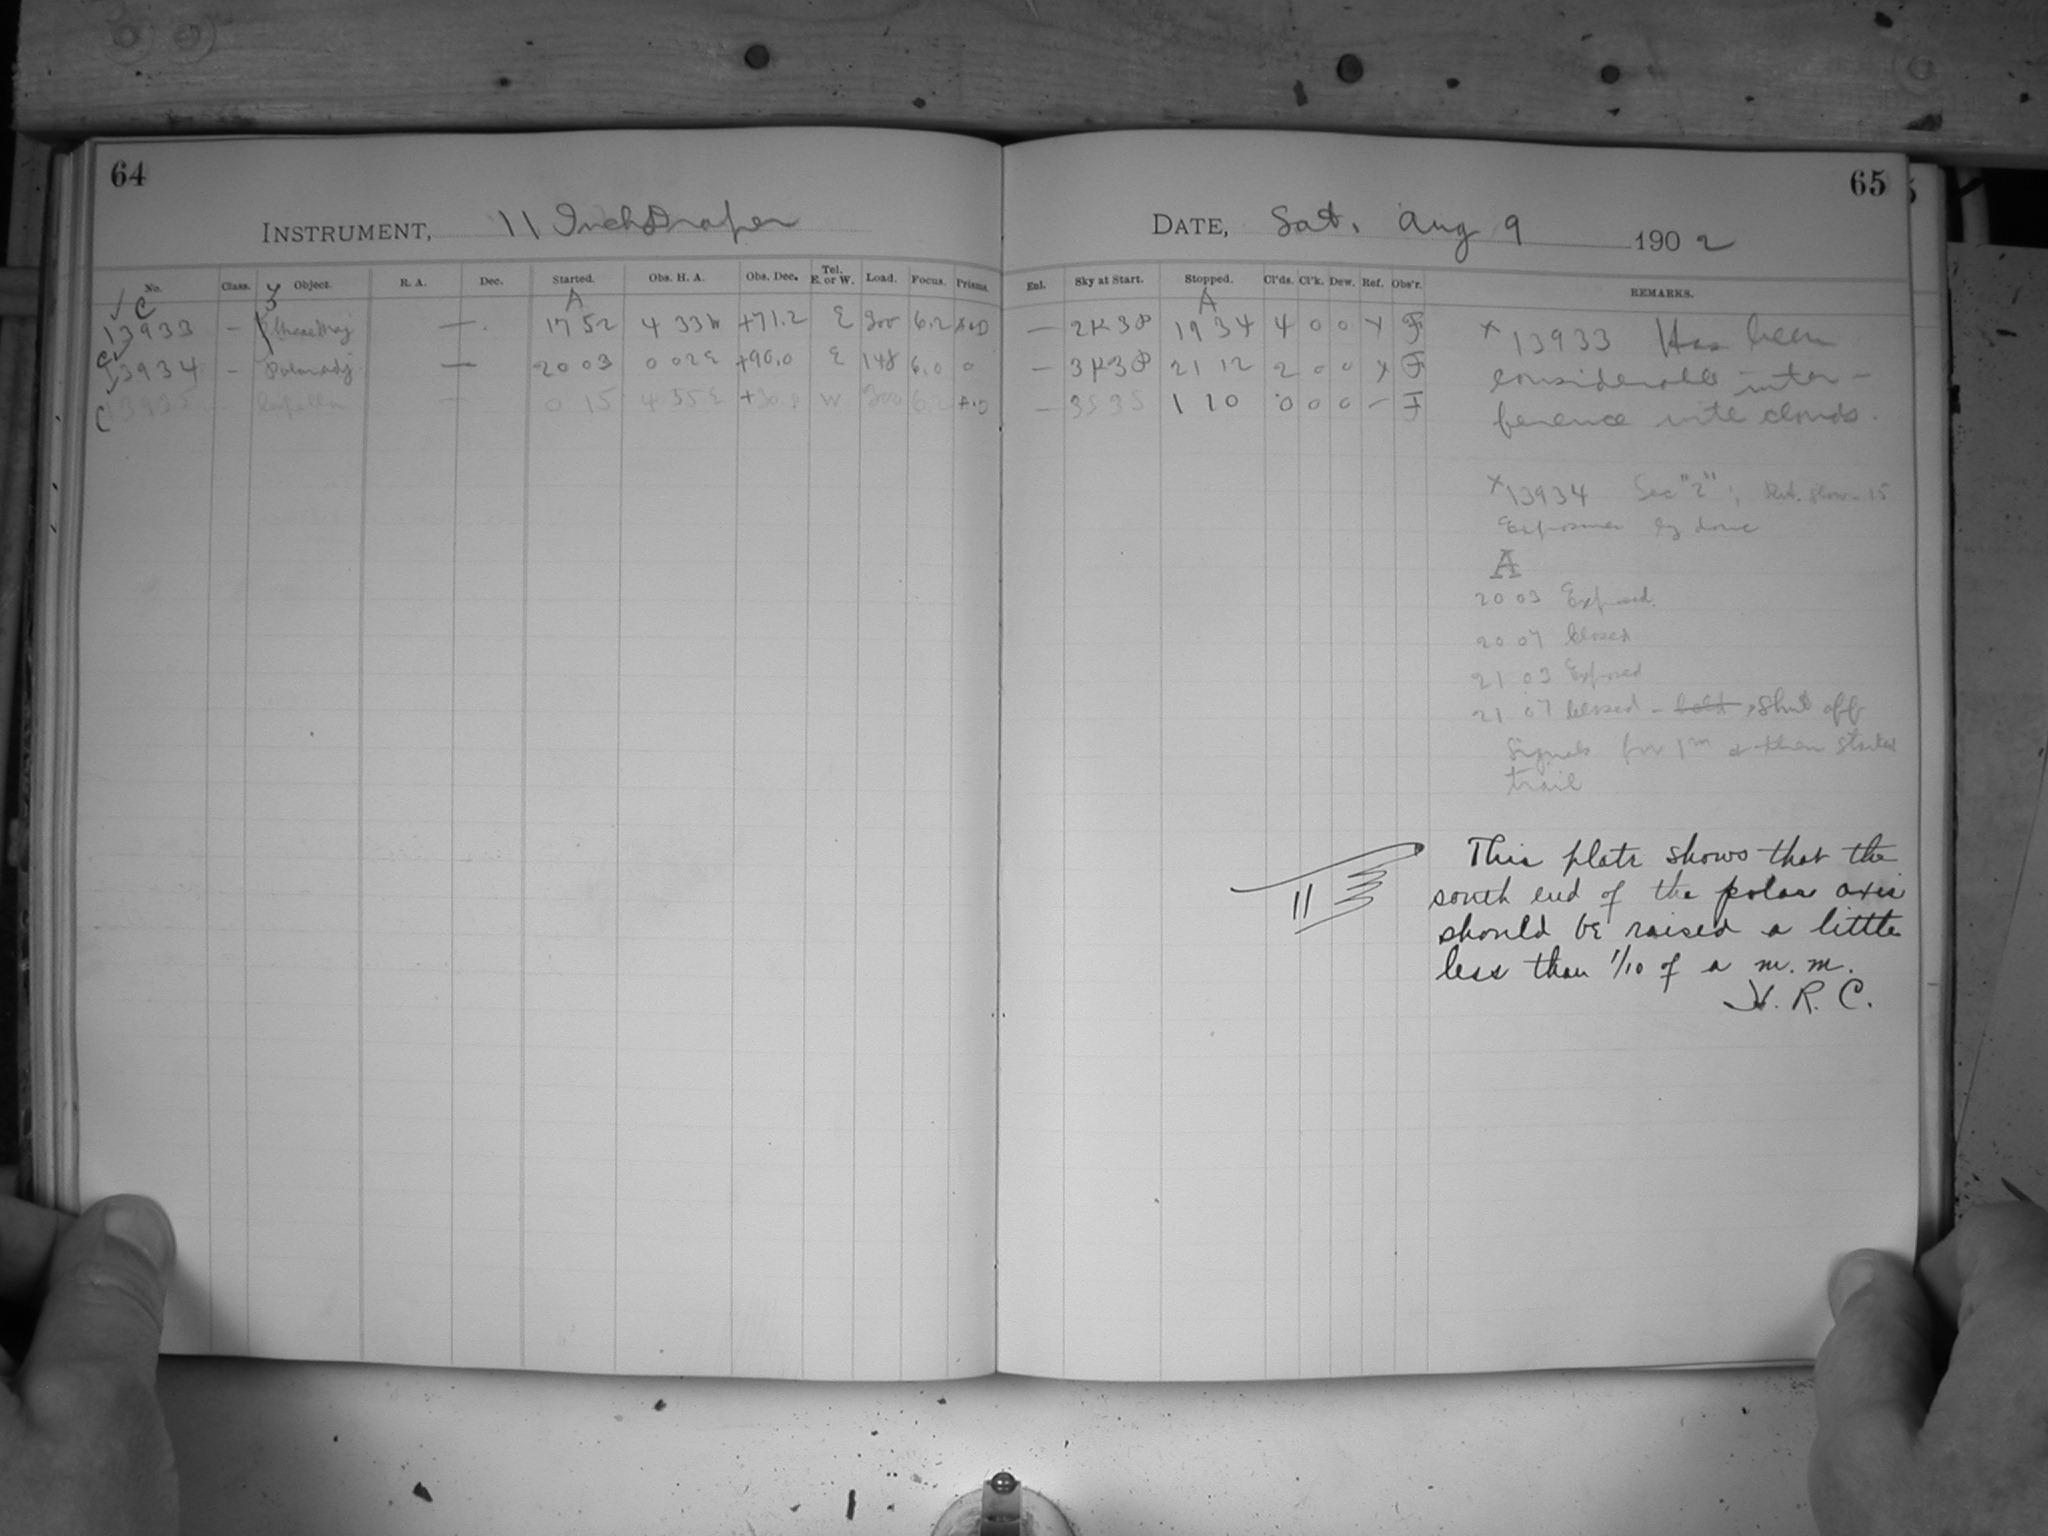 64
INSTRUMENT, 11 Inch Draper
No. Class. Object. R. A. Dec. Started. Obs. H. A. Obs. Dec. Tel. E. or W. Load. Focus. Prisms.
A
13933 – — 17 52 4 33 W +71.2 E 300 6.2
13934 – — 20 03 0 02 E +90.0 E 148 6.0 0
13935 – Capella — 0 15 4 55 E W 300 6.2
65
DATE, Sat. Aug 9 1902
Enl. Sky at Start. Stopped. Cl'ds. Cl'k. Dew. Ref. Obs'r. REMARKS.
A
— 2K38 19 34 4 0 0 x F
— 3K38 21 12 2 0 0 x F
— 3535 1 10 0 0 0 – F
x 13933 Has been
considerable inter-
ference with clouds.
x 13934 Sec "2";
Exposures by dome
A
20 03 Exposed.
20 07 closed
21 03 Exposed
21 07 closed – shut off
Signals for 1m & then started
trail
11
This plate shows that the
south end of the polar axis
should be raised a little
less than 1/10 of a m.m.
H. R. C.